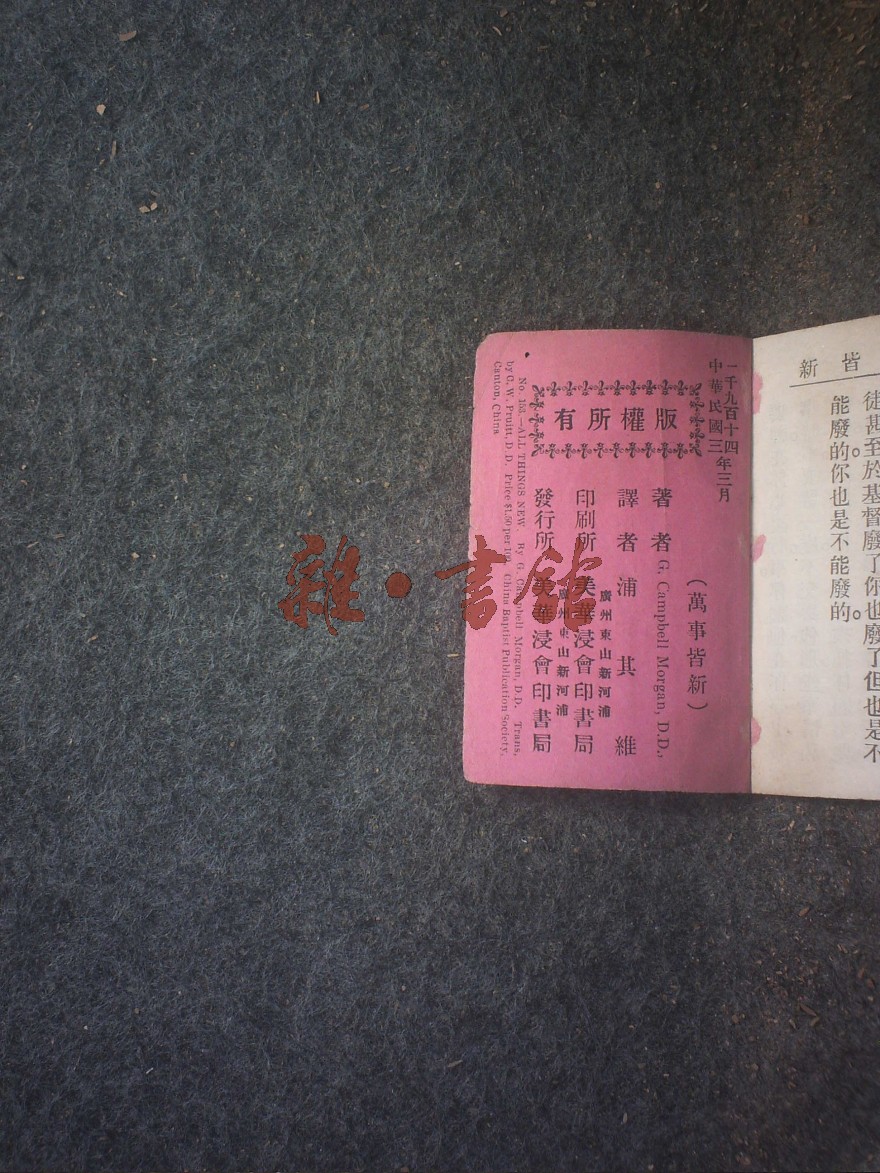 皆新
徒甚至於基督廢了你也廢了但也是不
能廢的你也是不能廢的。
一千九百十四年三月
中華民國三
版權所有
(萬事皆新)
著者 G. Campbell Morgan, D.D.,
譯者 浦其維
廣州東山新河浦
印刷所 美華浸會印書局
廣州東山新河浦
發行所 美華浸會印書局
No. 156.—ALL THINGS NEW By G. Campbell Morgan, D.D. Trans.
by C. W. Pruitt, D.D. Price $1.50 per 100 China Baptist Publication Society,
Canton, China
雜·書館